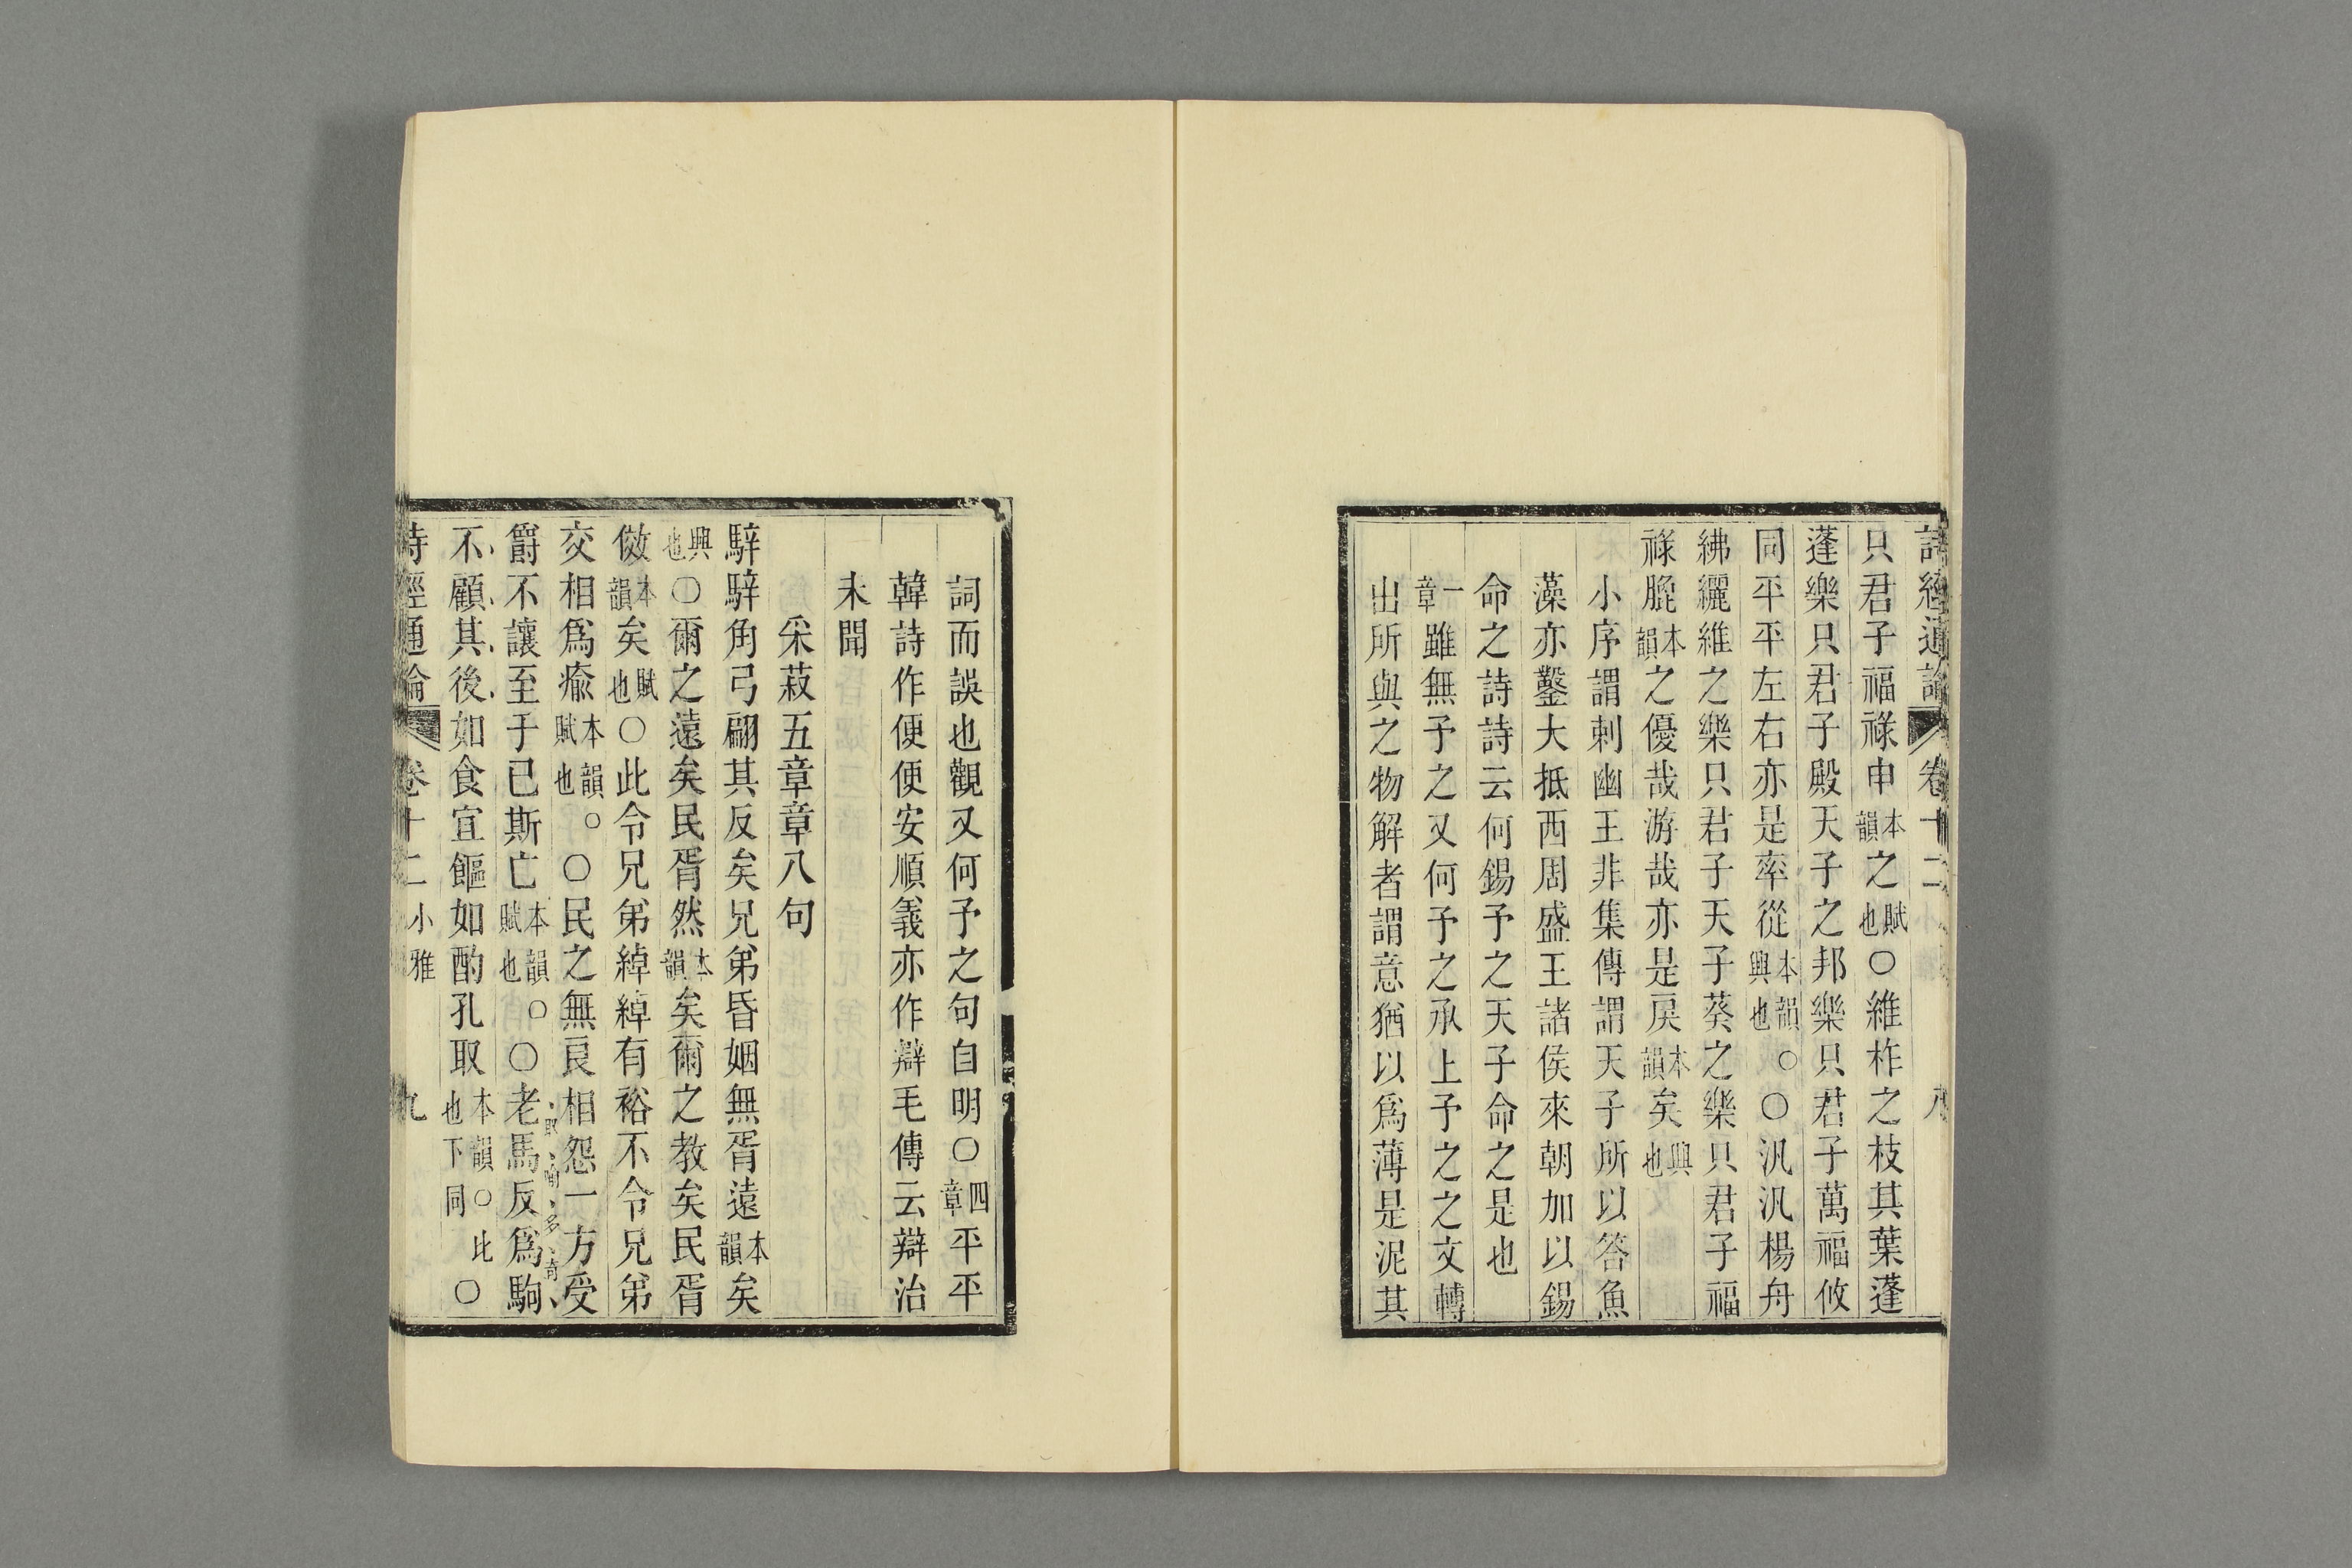 詩經通論 卷十二 小雅 八
只君子福祿申本韻之賦也○維柞之枝其葉蓬
蓬樂只君子殿天子之邦樂只君子萬福攸
同平平左右亦是率從本韻○興也○汎汎楊舟
紼纚維之樂只君子天子葵之樂只君子福
祿膍本韻之優哉游哉亦是戾本韻矣興也
小序謂刺幽王非集傳謂天子所以答魚
藻亦鑿大抵西周盛王諸侯來朝加以錫
命之詩詩云何錫予之天子命之是也
一章雖無予之又何予之承上予之之文轉
出所與之物解者謂意猶以爲薄是泥其
詞而誤也觀又何予之句自明○四章平平
韓詩作便便安順義亦作辯毛傳云辯治
未聞
采菽五章章八句
騂騂角弓翩其反矣兄弟昏姻無胥遠本韻矣
興也○爾之遠矣民胥然本韻矣爾之教矣民胥
傚本韻矣賦也○此令兄弟綽綽有裕不令兄弟
交相爲瘉本韻○賦也○民之無良相怨一方受
爵不讓至于已斯亡本韻○賦也○老馬反爲駒
取喻多奇
不顧其後如食宜饇如酌孔取本韻○比也下同○
詩經通論 卷十二 小雅 九